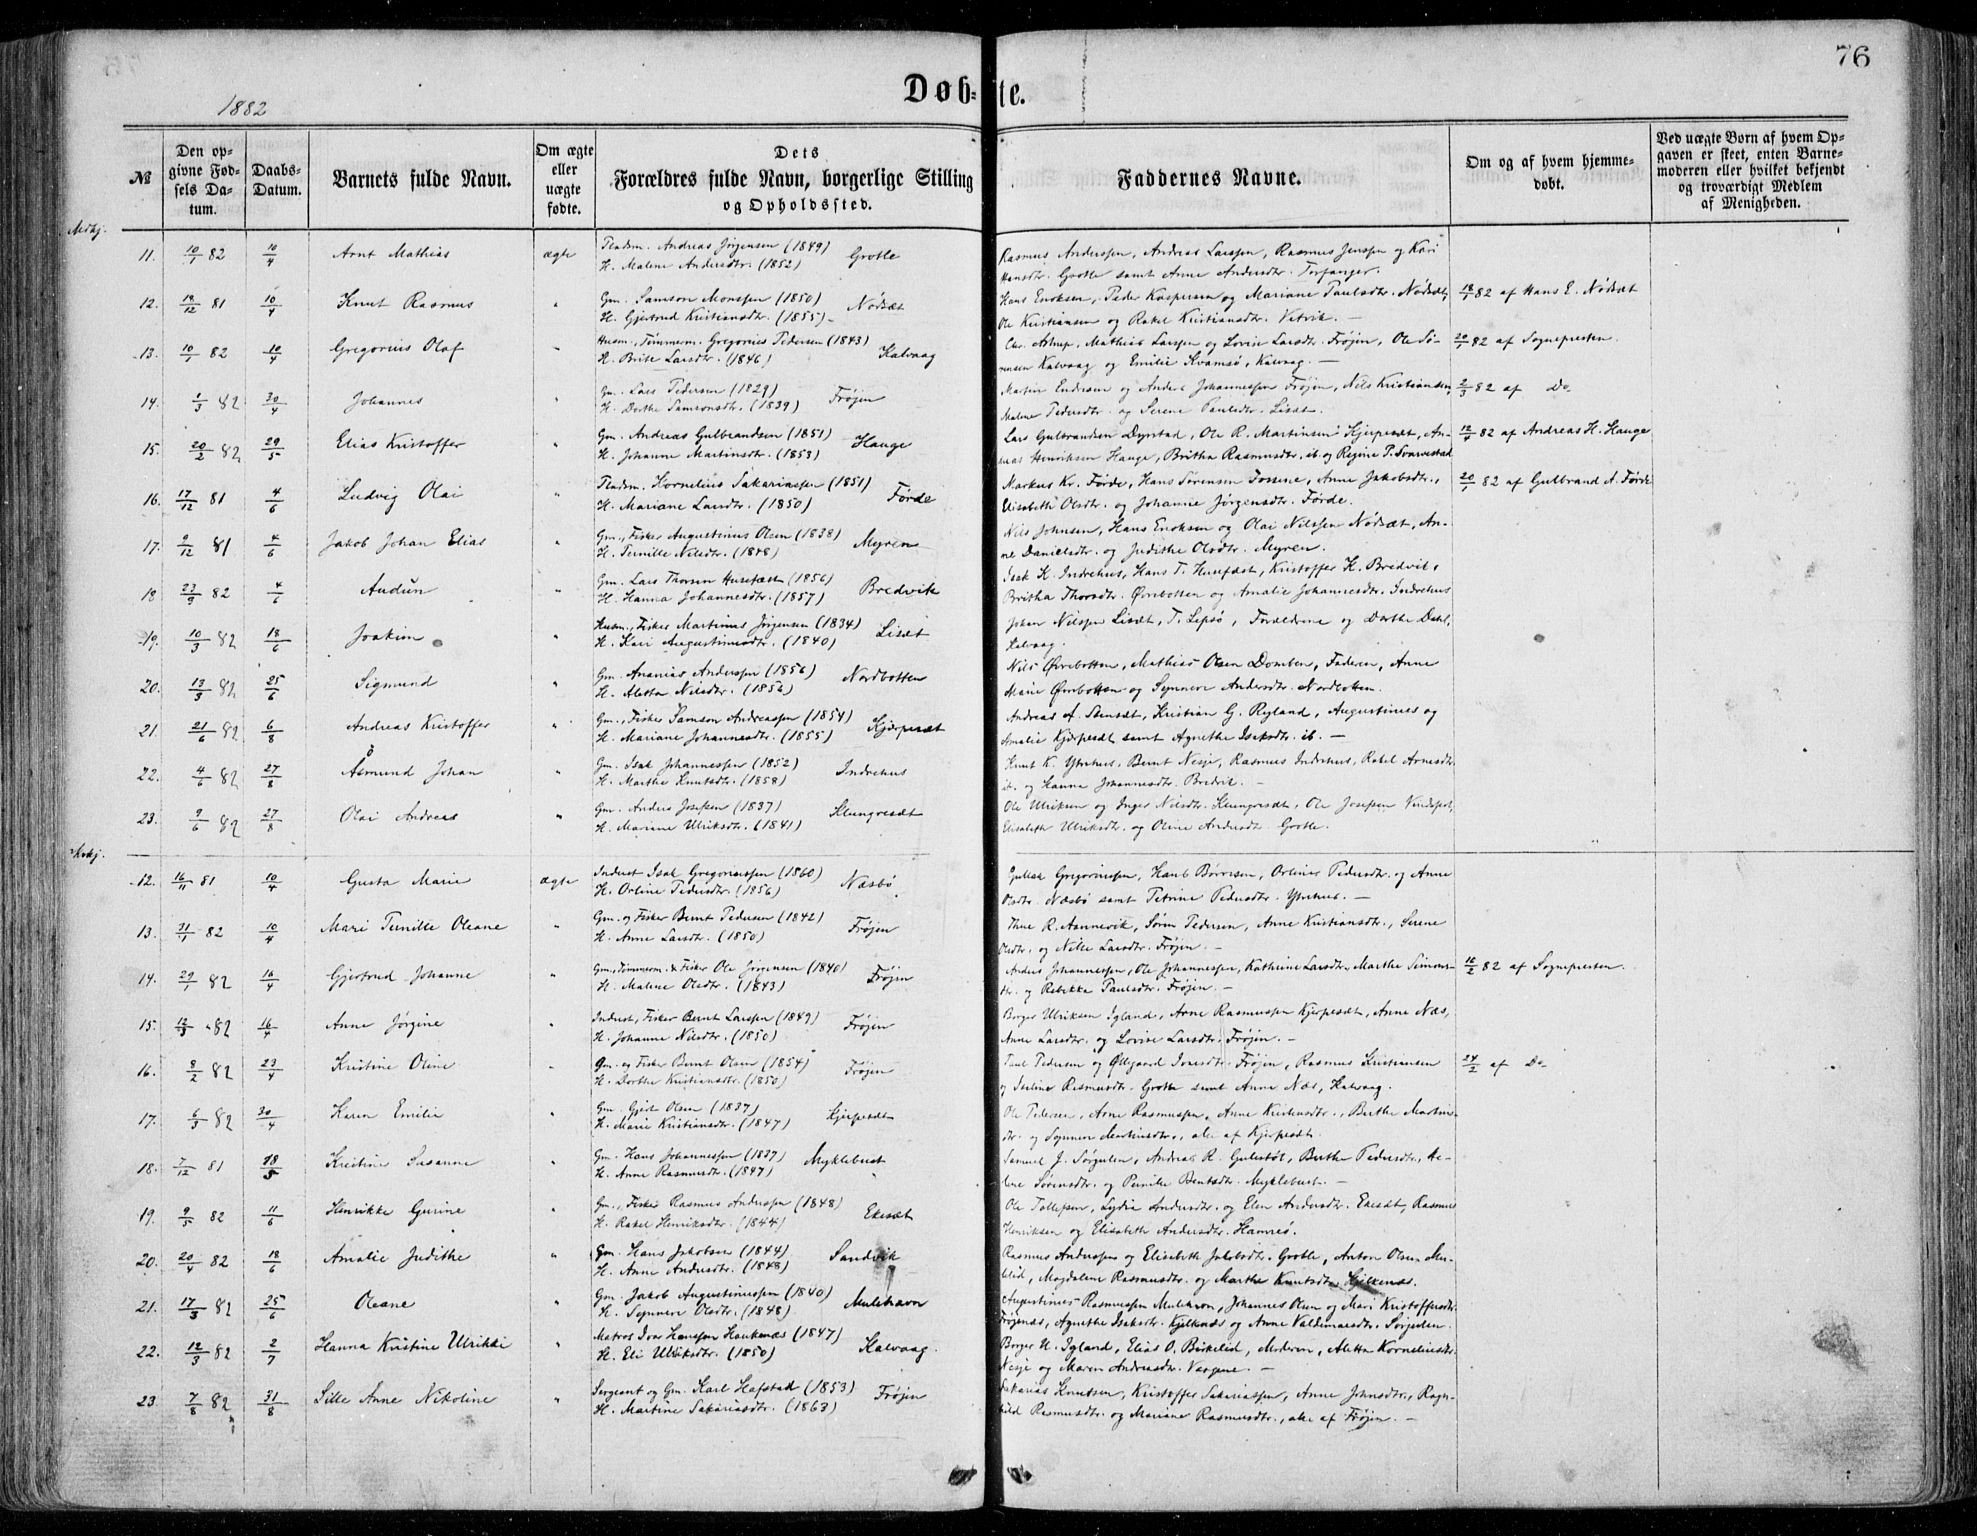 76
1882
Døb- te.
№
Den opgivne Fødsels Datum.
Daabs-Datum.
Barnets fulde Navn.
Om ægte eller uægte fødte.
Dets Forældres fulde Navn, borgerlige Stilling og Opholdssted.
Faddernes Navne.
Om og af hvem hjemmedøbt.
Ved uægte Børn af hvem Opgaven er skeet, enten Barnemoderen eller hvilket bekjendt og troværdigt Medlem af Menigheden.
Mdkj.
11. 10/1 82 10/4 Arnt Mathias ægte Pladsm. Andreas Jørgensen (1849) Grotle
H. Malene Andersdtr. (1852)
Rasmus Anderssen, Andreas Larssen, Rasmus Jenssen og Kari
Hansdtr. Grotle samt Anne Andersdtr. Torfanger.
12. 18/12 81 10/4 Knut Rasmus " Gm. Samson Monssen (1850) Nødsæt
H. Gjertrud Kristiansdtr. (1855)
Hans Enoksen, Peder Kaspersen og Mariane Paulsdtr. Nødsæt,
Ole Kristiansen og Rakel Kristiansdtr. Vetvik. —
18/1 82 af Hans E. Nødsæt
13. 10/1 82 10/4 Gregorius Olaf " Husm., Tømmerm. Gregorius Pedersen (1843) Kalvaag
H. Brite Larsdtr. (1846)
Chr. Astrup, Mathias Larssen og Lovise Larsdtr. Frøjen, Ole Sø-
rensen Kalvaag og Emilie Kvamsø, Kalvaag. —
20/1 82 af Sognepresten.
14. 1/3 82 30/4 Johannes " Gm. Lars Pedersen (1829) Frøjen
H. Dorthe Samsonsdtr. (1839)
Martin Endresen og Anders Johannessen Frøjen, Nils Kristiansen,
Malene Pedersdtr. og Serene Paulsdtr. Lisæt.
2/3 82 af Do
15. 20/2 82 29/5 Elias Kristoffer " Gm. Andreas Gulbrandsen (1851) Hauge
H. Johanne Martinsdtr. (1853)
Lars Gulbrandsen Dyrstad, Ole R. Martinsen Kjerpesæt, An-
dreas Henriksen Hauge, Britha Rasmusdtr. ib. og Regine P. Svarvestad
12/4 82 af Andreas H. Hauge
16. 17/12 81 4/6 Ludvig Olai " Pladsm. Kornelius Sakariassen (1851) Førde
H. Mariane Larsdtr. (1850)
Markus Kr. Førde, Hans Sørensen Fosene, Anne Jakobsdtr.,
Elisabeth Olsdtr. og Johanne Jørgensdtr. Førde.
20/1 82 af Gulbrand A. Førde
17. 9/12 81 4/6 Jakob Johan Elias " Gm., Fisker Augustinus Olsen (1838) Myren
H. Pernille Nilsdtr. (1848)
Nils Johnsen, Hans Enoksen og Olai Nilssen Nødsæt, An-
ne Danielsdtr. og Judithe Olsdtr. Myren.
18 23/3 82 4/6 Audun " Gm. Lars Thorsen Husefæst (1856) Bredvik
H. Hanna Johannesdtr. (1857)
Isak K. Indrehus, Hans T. Husefæst, Kristoffer H. Bredvik,
Britha Thorsdtr. Ørnbotten og Amalie Johannesdtr. Indrehus
19. 10/3 82 18/6 Joakim " Husm., Fisker Martinus Jørgensen (1834) Lisæt
H. Kari Augustinusdtr. (1840)
Johan Nilssen Lisæt, T. Lepsø, Forældrene og Dorthe Dahl,
Kalvaag.
20. 13/3 82 25/6 Sigmund " Gm. Ananias Anderssen (1856) Nordbotten
H. Aletta Nilsdtr. (1856)
Nils Ørnbotten, Mathias Olsen Domben, Faderen, Anne
Marie Ørnbotten og Synneve Andersdtr. Nordbotten.
21. 21/6 82 6/8 Andreas Kristoffer " Gm., Fisker Samson Andreassen (1854) Kjerpesæt
H. Mariane Johannesdtr. (1855)
Andreas A. Stensæt, Kristian G. Ryland, Augustinus og
Amalie Kjerpesæt samt Agnethe Isaksdtr. ib. —
22. 4/6 82 27/8 Åsmund Johan " Gm. Isak Johannessen (1852) Indrehus
H. Marthe Knutsdtr. (1858)
Knut K. Ytrehus, Bernt Nesje, Rasmus Indrehus, Rakel Arnesdtr.
ib. og Hanna Johannesdtr. Bredvik. —
23. 9/6 82 27/8 Olai Andreas " Gm. Anders Josefsen (1837) Klungresæt
H. Mariane Ulriksdtr. (1841)
Ole Ulriksen og Inger Nilsdtr. Klungresæt, Ole Josefsen Vindspol,
Elisabeth Ulriksdtr. og Oline Andersdtr. Grotle.
Kvkj.
12. 16/11 81 10/4 Gusta Marie ægte Inderst Isak Gregoriussen (1860) Næsbø
H. Orline Pedersdtr. (1856)
Gulak Gregoriussen, Hans Børresen, Orline Pedersdtr. og Anne
Olsdtr. Næsbø samt Petrine Pedersdtr. Ytrehus. —
13. 21/1 82 10/4 Mari Pernille Oleane " Gm. og Fisker Bernt Pedersen (1842) Frøjen
H. Anne Larsdtr. (1850)
Thue R. Aannevik, Søren Pedersen, Anne Kristiansdtr., Serene
Olsdtr. og Nille Larsdtr. Frøjen. —
14. 29/1 82 16/4 Gjertrud Johanne " Gm., Tømmerm. & Fisker Ole Jørgensen (1840) Frøjen
H. Malene Olsdtr. (1843)
Anders Johannessen, Ole Johannessen, Kathrine Larsdtr., Marthe Simons-
dtr. og Rebekka Paulsdtr. Frøjen. —
16/2 82 af Sognepresten.
15. 12/3 82 16/4 Anne Jørgine " Inderst, Fisker Bernt Larssen (1849) Frøjen
H. Johanne Nilsdtr. (1850)
Borger Ulriksen Igland, Arne Rasmussen Kjerpesæt, Anne Næs,
Anne Larsdtr. og Lovise Larsdtr. Frøjen. —
16. 8/2 82 23/4 Kristine Oline " Gm. og Fisker Bernt Olsen (1854) Frøjen
H. Dorthe Kristiansdtr. (1850)
Paul Pedersen og Øllegaard Iversdtr. Frøjen, Rasmus Kristiansen
og Iverline Rasmusdtr. Grotle samt Anne Næs, Kalvaag.
24/2 af Do
17. 6/3 82 30/4 Karen Emilie " Gm. Gjert Olsen (1837) Kjerpesæt
H. Marie Kristiansdtr. (1847)
Ole Pedersen, Arne Rasmussen, Anne Kristensdtr., Berthe Martins-
dtr. og Synneve Martinsdtr., alle af Kjerpesæt.
18. 7/12 81 18/5 Kristine Susanne " Gm. Hans Johannessen (1837) Myklebust
H. Anne Rasmusdtr. (1847)
Samuel J. Sørgulen, Andreas R. Gulestøl, Berthe Pedersdtr., He-
lene Sørensdtr. og Pernille Berntsdtr. Myklebust. —
19. 9/5 82 11/6 Henrikke Gurine " Gm., Fisker Rasmus Anderssen (1848) Ekesæt
H. Rakel Henriksdtr. (1844)
Ole Tollefsen, Lydia Andersdtr. og Elen Andersdtr. Ekesæt, Rasmus
Henriksen og Elisabeth Andersdtr. Hamrø.
20. 20/4 82 18/6 Amalie Judithe " Gm. Hans Jakobsen (1844) Sandvik
H. Anne Andersdtr. (1848)
Rasmus Anderssen og Elisabeth Jakobsdtr. Grotle, Anton Olsen
Magdalene Rasmusdtr. og Marthe Knutsdtr. Hjelkenæs.
21. 17/3 82 25/6 Oleane " Gm. Jakob Augustinussen (1840) Mulehavn
H. Synneve Olsdtr. (1848)
Augustinus Rasmussen Mulehavn, Johannes Olsen og Mari Kristoffersdtr.
Frøjenæs, Agnethe Isaksdtr. Kjelknæs og Anne Valdemarsdtr. Sørgulen.
22. 12/3 82 2/7 Hanna Kristine Ulrikke " Matros Ivar Hanssen Haukenæs (1847) Kalvaag.
H. Eli Ulriksdtr. (1850)
Borger U. Igland, Elias O. Birkelid, Moderen, Aletta Korneliusdtr.
Nesje og Maren Andreasdtr. Vaagene. —
23. 7/8 82 31/8 Sille Anne Nikoline " Sergeant og Gm. Karl Hafstad (1853) Frøjen
H. Martine Sakariasdtr. (1863)
Sakarias Knutsen, Kristoffer Sakariassen, Anne Johnsdtr., Ragn-
hild Rasmusdtr. og Mariane Rasmusdtr., alle af Frøjen. —